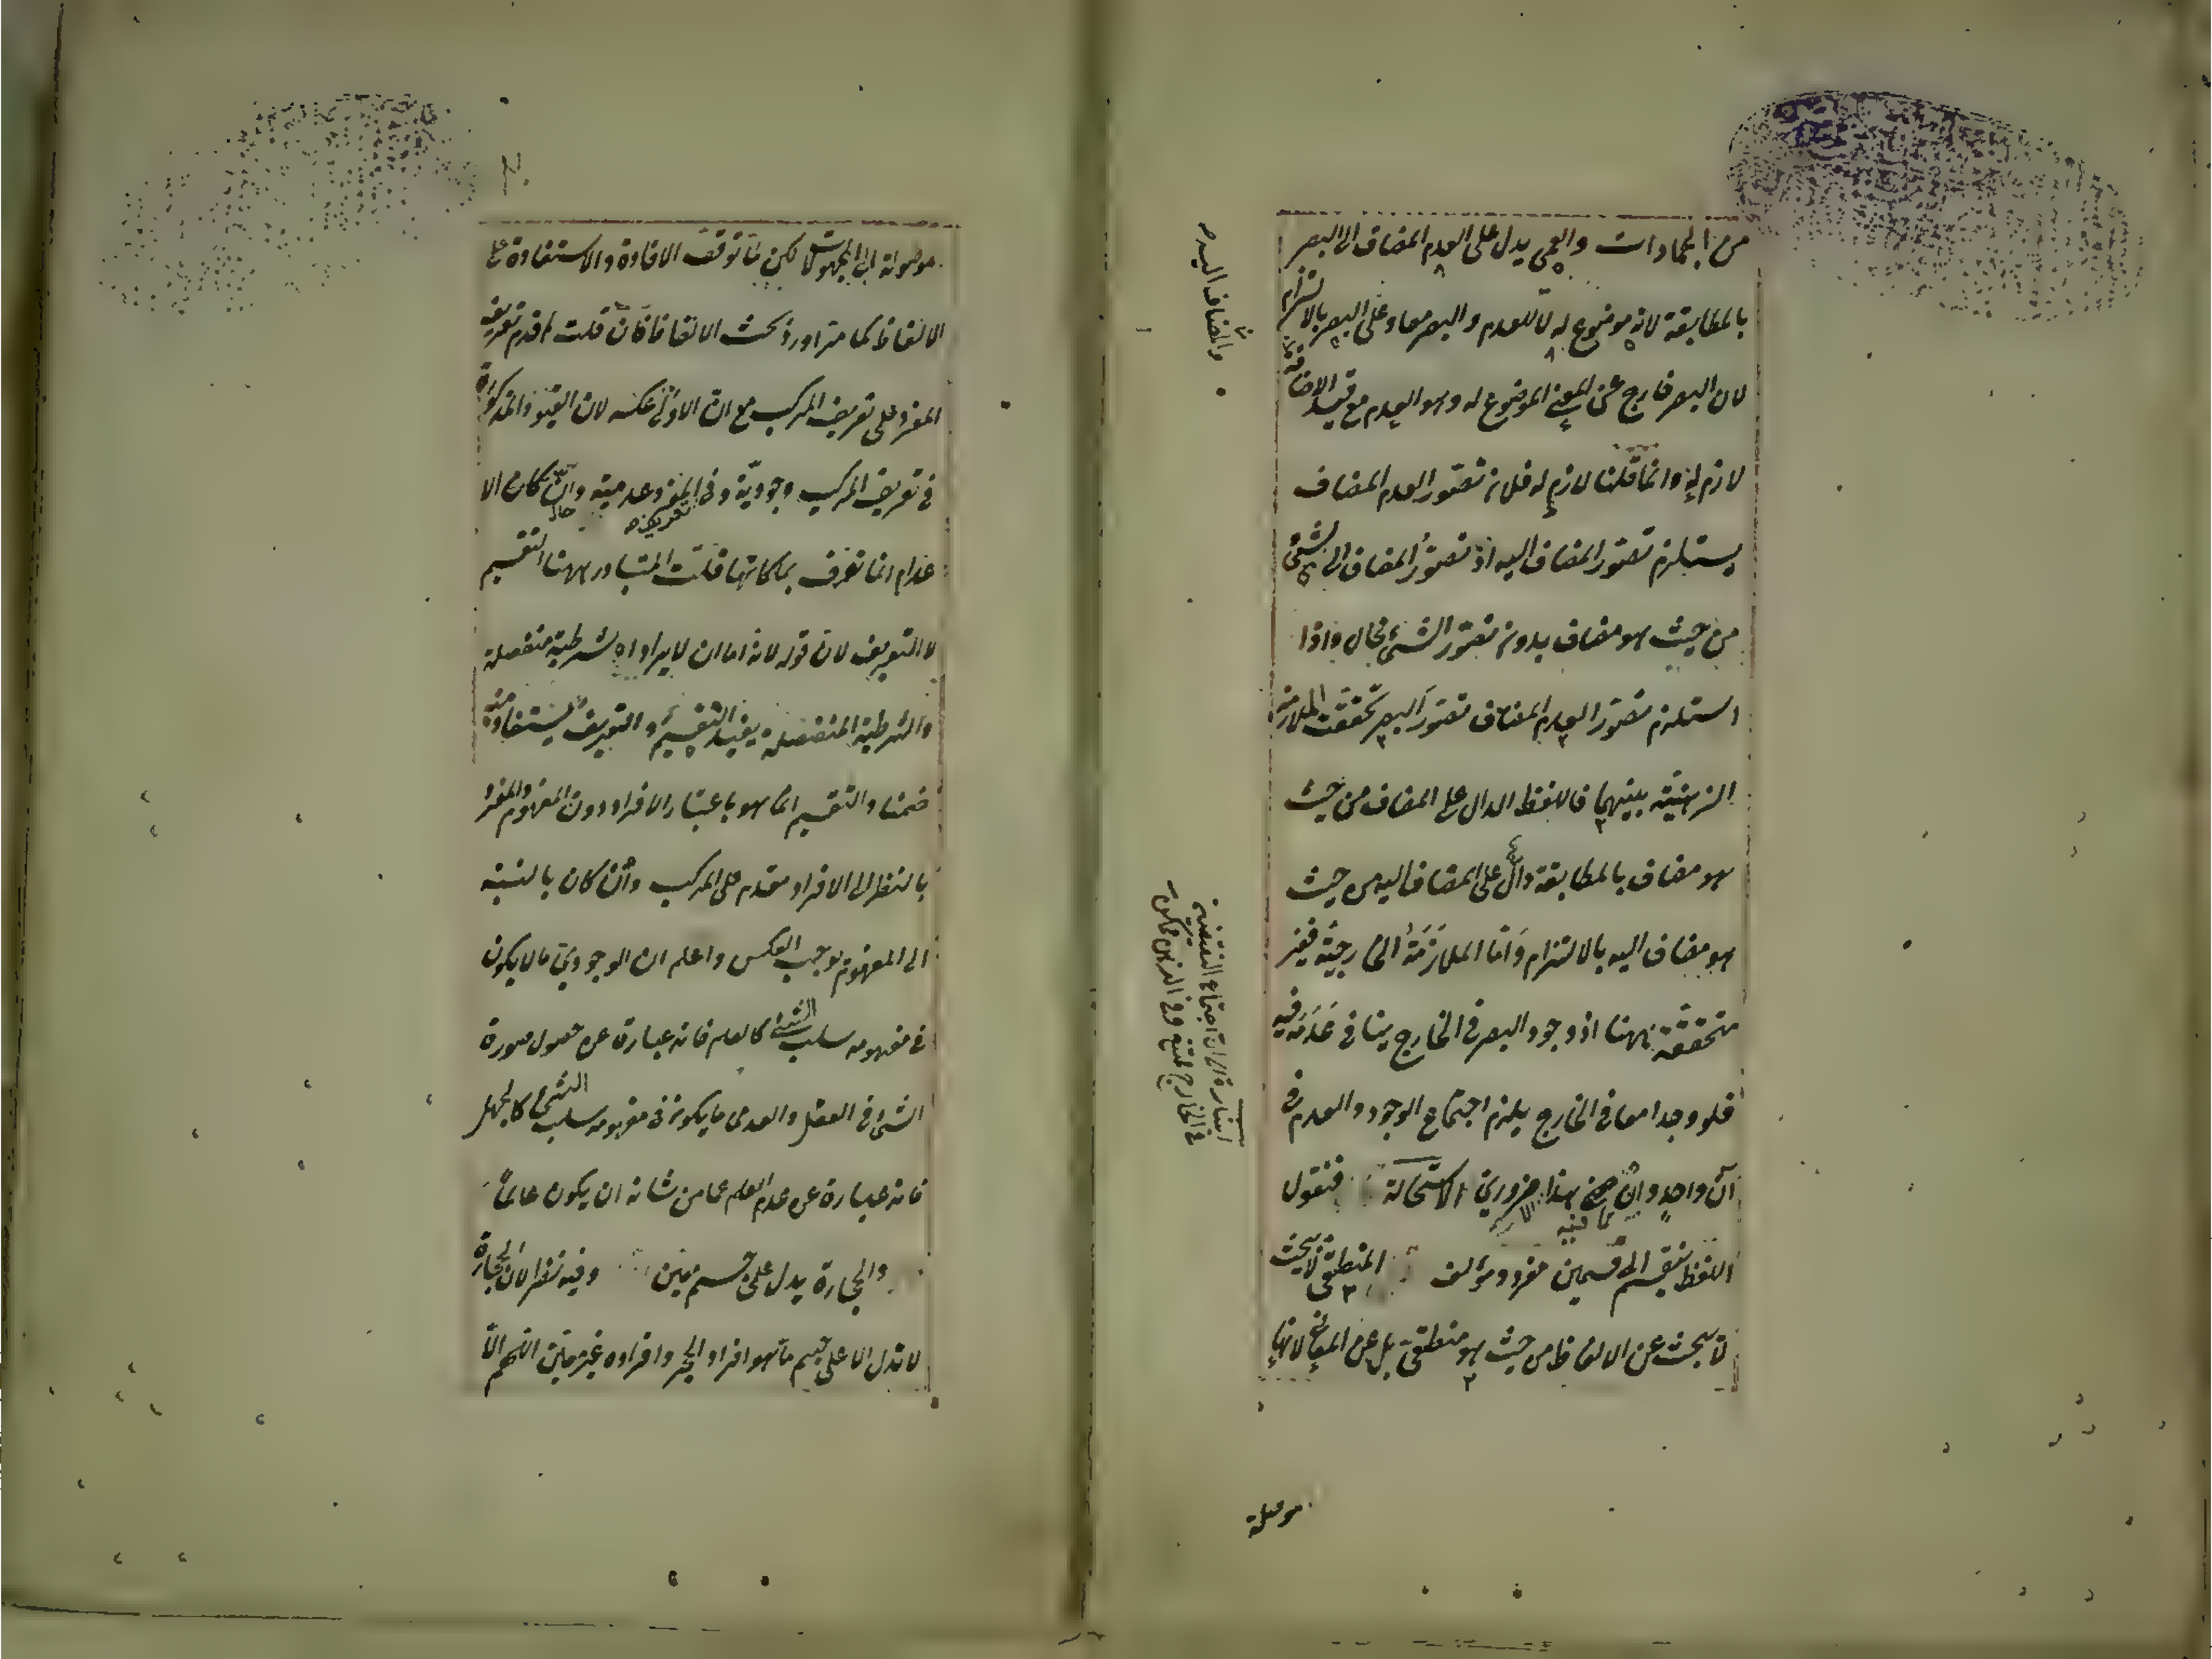 من الجمادات والعمى يدل على العدم المضاف الى البصر
بالمطابقة لانه موضوع له لا للعدم والبصر معا وعلى البصر بالالتزام
لان البصر خارج عن المعنى الموضوع له وهو العدم مع قيد الاضافة
لازم له وانما قلنا لازم له فلان تصور العدم المضاف
يستلزم تصور المضاف اليه اذ تصور المضاف الى الشئ
من حيث هو مضاف بدون تصور الشئ محال واذا
استلزم تصور العدم المضاف تصور البصر تحققت الملازمة
الذهنية بينهما فاللفظ الدال على المضاف من حيث
هو مضاف بالمطابقة دال على المضاف اليه من حيث
هو مضاف اليه بالالتزام وَامّا الملازَمَةُ الخارجيّة فغير
متحققة ههنا اذ وجود البصر فى الخارج ينافى عَدَمَه فيه
فلو وجدا معا فى الخارج يلزم اجتماع الوجود والعدم فى
آن واحدٍ وان هذا ضرورىّ الاستحالة فنقول
اللفظ ينقسم الى قسمين مفرد ومؤلف المنطقى لا يبحث
لا يبحث عن الالفاظ من حيث هو منطقىّ بل عن المعانى لانها
والمضاف اليه
اشارة الى ان اجتماع النقيضين
فى الخارج ممتنع وفى الذهن ممكن
موصلة
موصولة الى المجهولات لكن لمّا توقف الافادة والاستفادة على
الالفاظ كما مر اورد بحث الالفاظ فان قلت لم قدم تعريف
المفرد على تعريف المركب مع ان الاولى عكسه لان القيود المذكورة
فى تعريف المركب وجوديّة وفى المفرد عدمية وان كان الا
تعريفه
عدام انما تعرف بملكاتها قلت المتبادر ههنا التقسيم
لا التعريف لان قوله لانه اما ان لا يراد اه شرطية منفصلة
والشرطية المنفصلة يفيد التقسيم والتعريف يستفاد منه
ضمنا والتقسيم انما هو باعتبار الافراد دون المفهوم والمفرد
بالنظر الى الافراد مقدم على المركب وان كان بالنسبة
الى المفهوم يوجب العكس واعلم ان الوجودىّ ما لا يكون
فى مفهومه سلب الشئ كالعلم فانه عبارة عن حصول صورة
الشئ فى العقل والعدمى ما يكون فى مفهومه سلب الشئ كالجهل
فانه عبارة عن عدم العلم عما من شانه ان يكون عالماً
والحجارة يدل على جسم معين وفيه نظر لان الحجارة
لا تدل الا على جسم ما هو افراد الحجر وافراده غير معين اللهم الّا